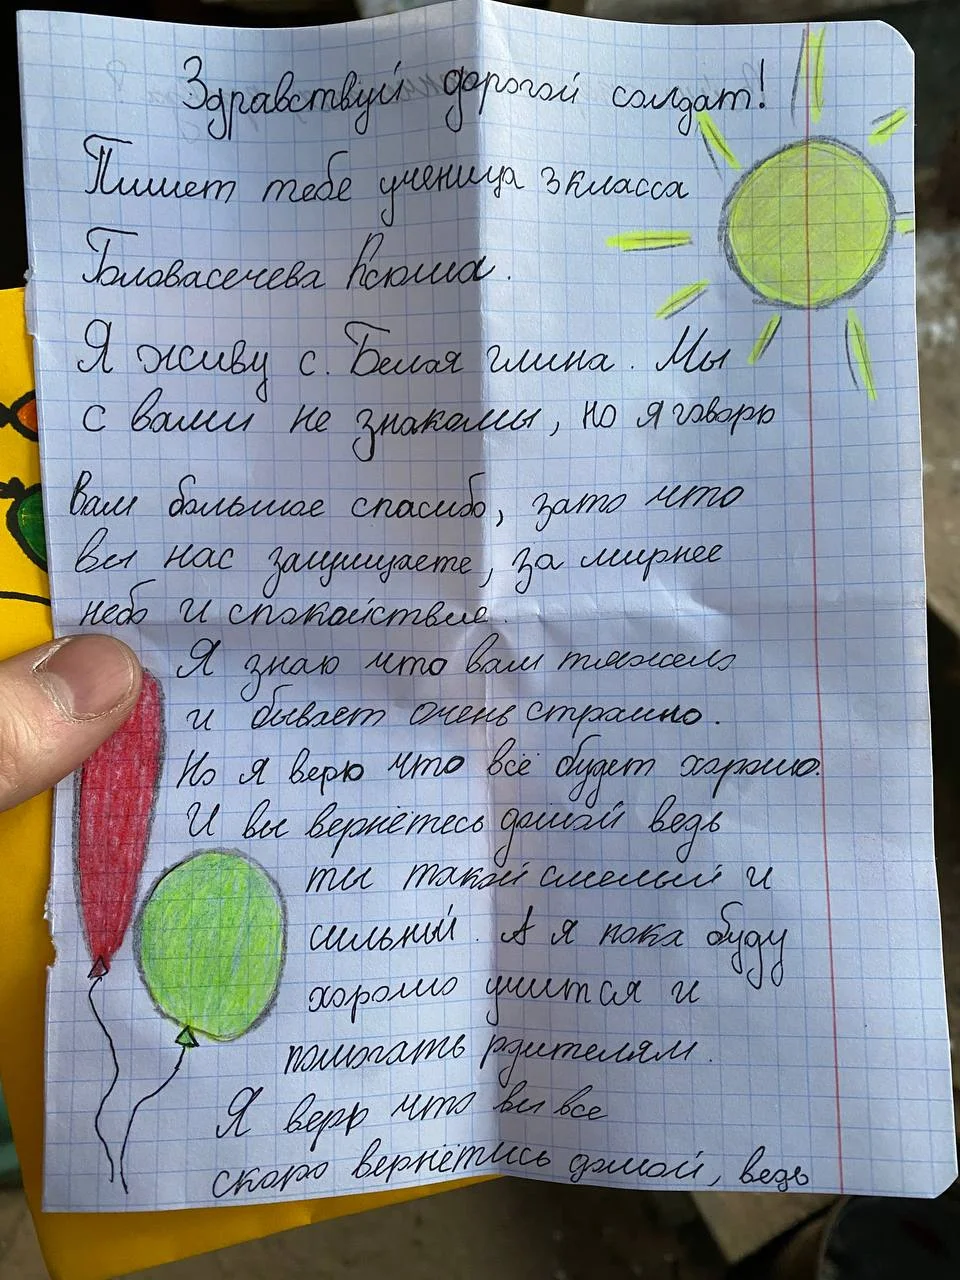 Здравствуй дорогой солдат!
Пишет тебе ученица 3 класса
Головасечева Ксюша.
Я живу с. Белая глина. Мы
с вами не знакомы, но я говорю
Вам большое спасибо, зато что
вы нас защищаете, за мирнее
небо и спокойствие.
Я знаю что вам тяжело
и бывает очень страшно.
Но я верю что всё будет хорошо.
И вы вернётесь домой ведь
ты такой смелый и
сильный. А я пока буду
хорошо учится и
помогать рдителям.
Я верю что вы все
скоро вернётись домой, ведь